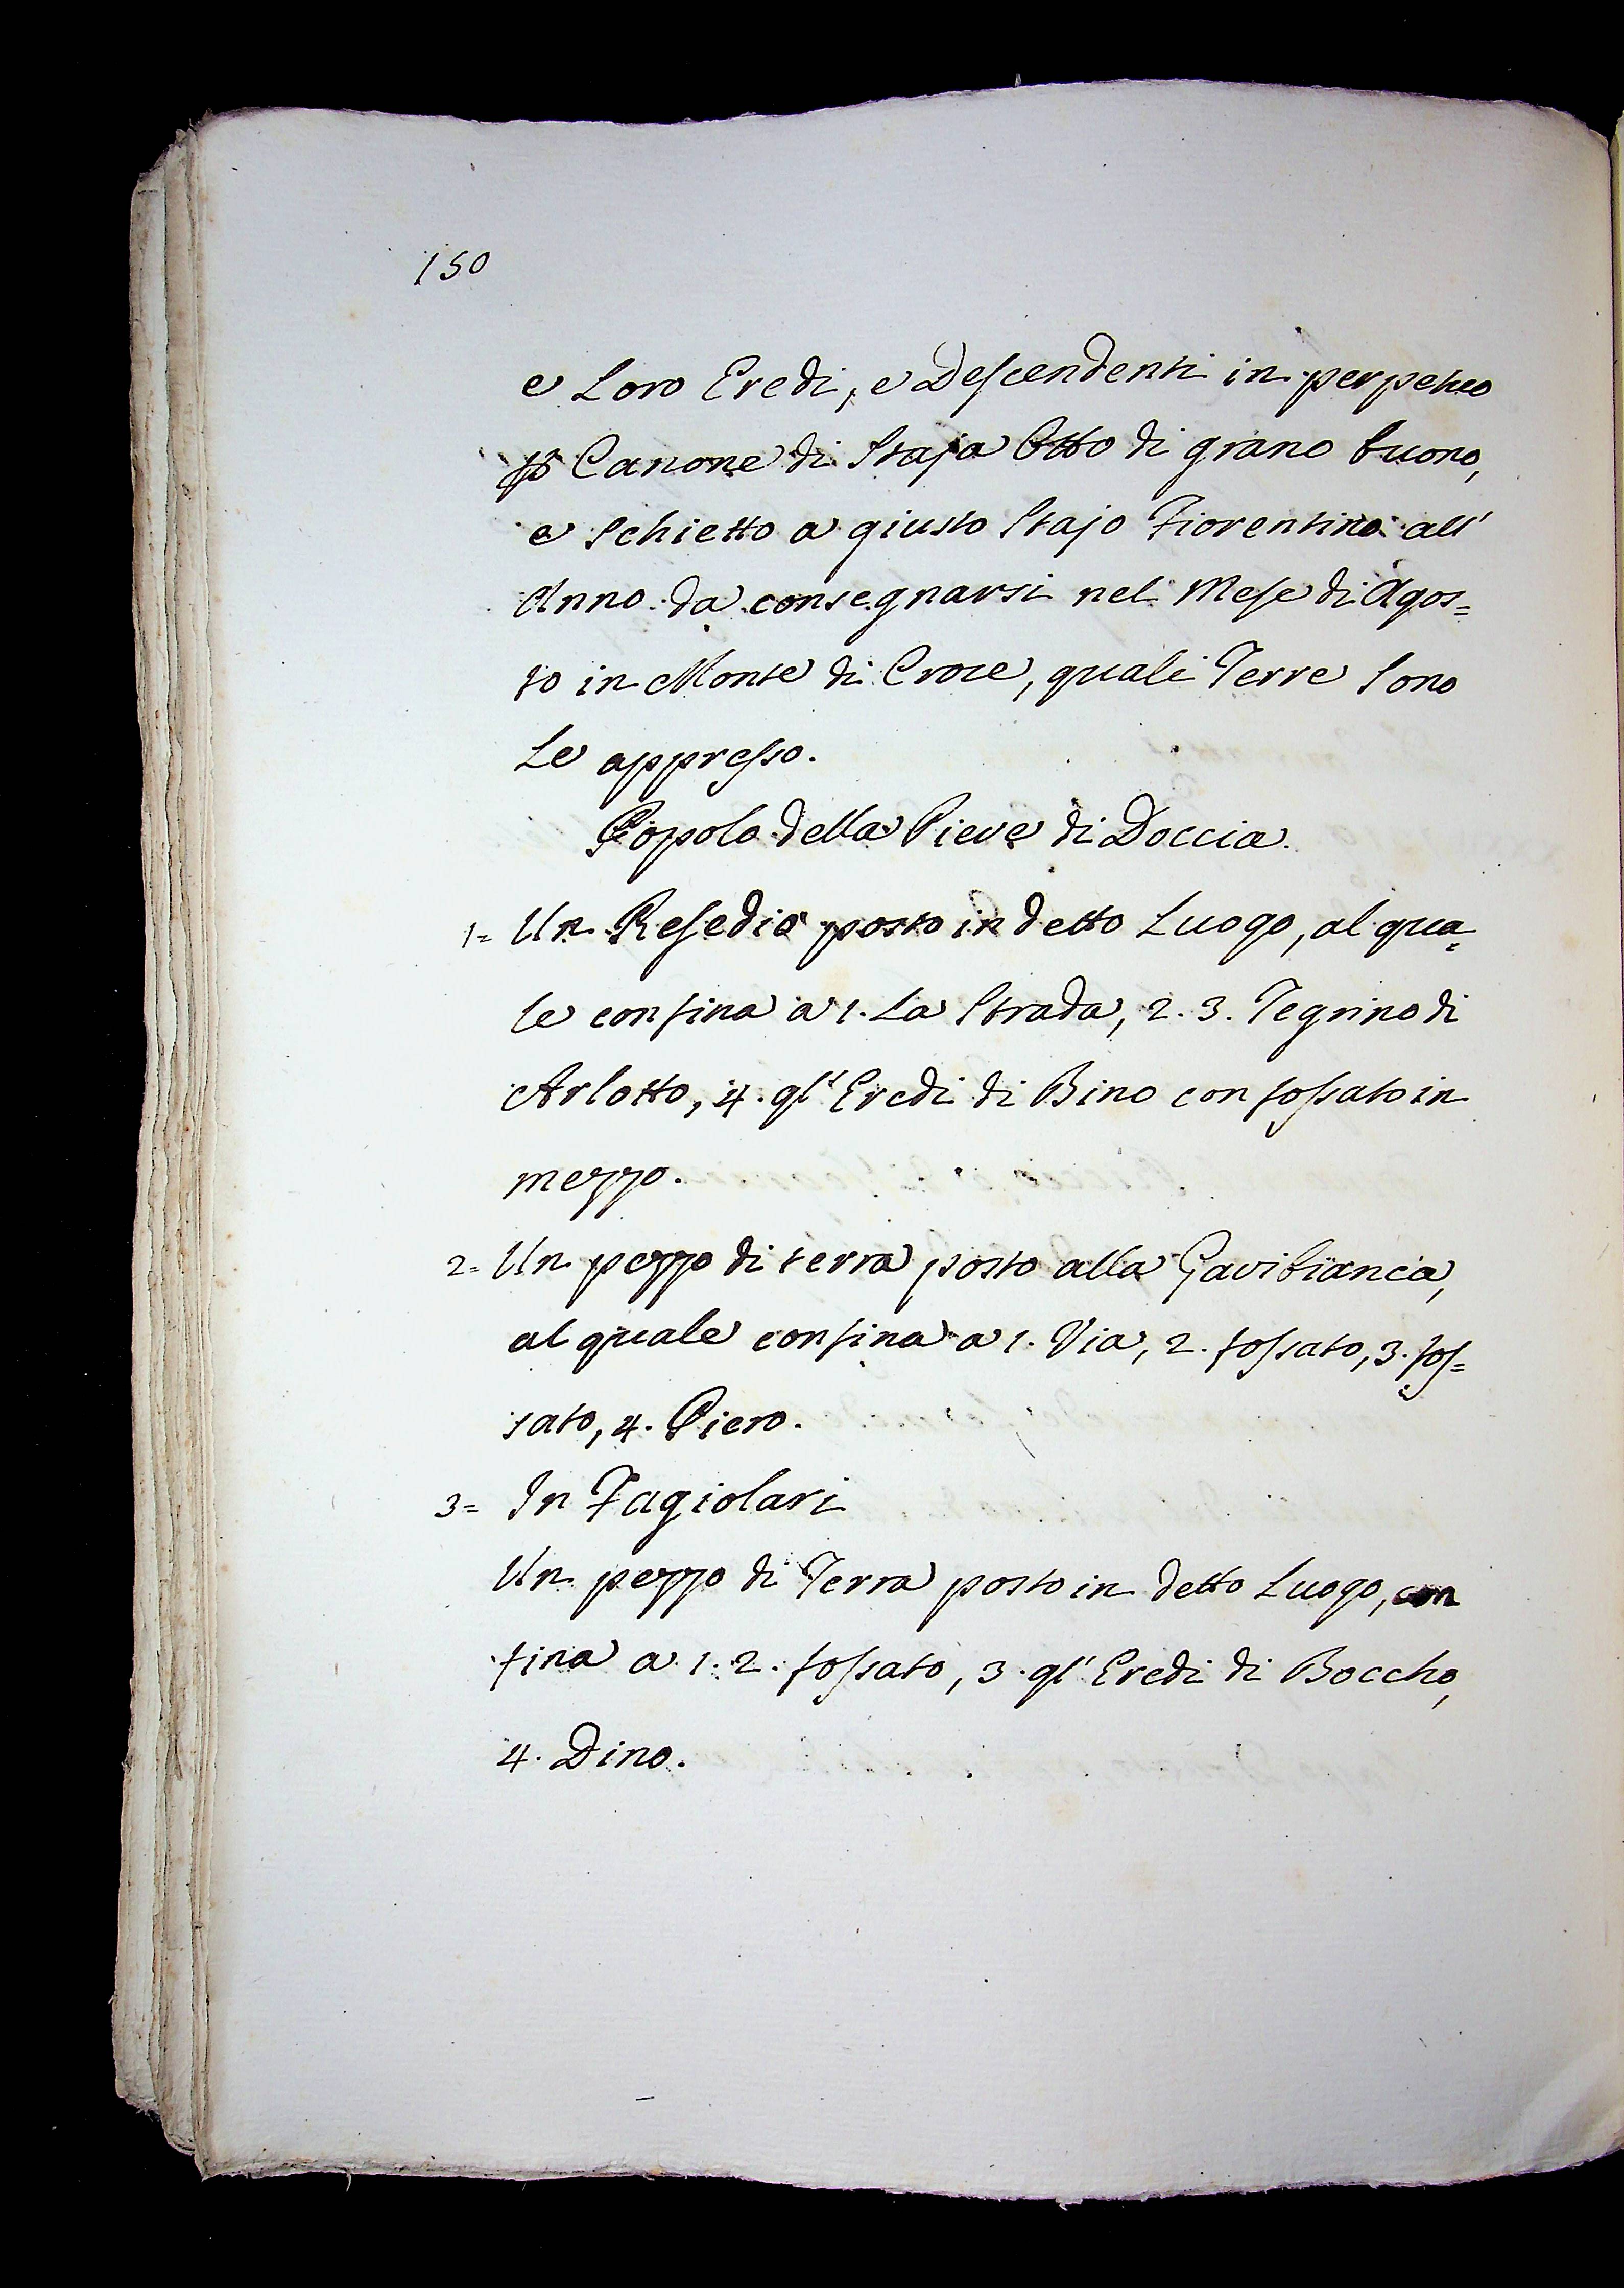 150
e Loro Eredi, e Descendenti in perpetuo
p Canone di Staja Otto di grano buono,
e Schietto a giusto Stajo Fiorentino all'
Anno da consegnarsi nel Mese di Agos=
to in Monte di Croce, quali Terre Sono
Le appresso.
Popolo della Pieve di Doccia.
1= Un Resedio posto in detto Luogo, al qua=
le confina a 1. La Strada, 2. 3. Tegrino di
Arlotto, 4. gl' Eredi di Bino con fossato in
mezzo.
2= Un pezzo di terra posto alla Gavibianca,
al quale confina a 1. Via, 2. fossato, 3. fos=
sato, 4. Piero.
3= In Fagiolari
Un pezzo di Terra posto in detto Luogo, con
fina a 1. 2. fossato, 3. gl' Eredi di Boccho,
4. Dino.